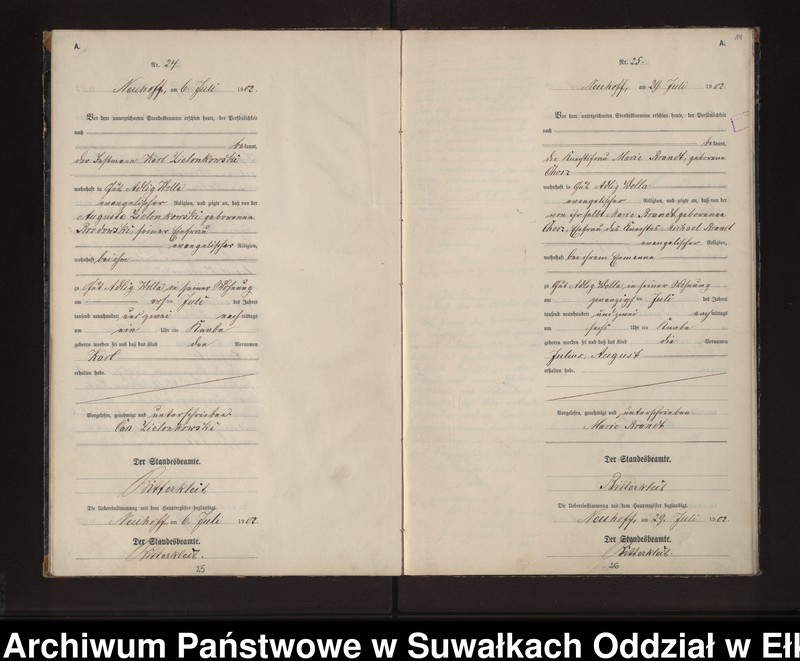 A.
Nr. 24.
Neuhoff, am 6. Juli 1902.
Vor dem unterzeichneten Standesbeamten erschien heute, der Persönlichkeit
nach
bekannt,
der Karl Zielonkowski
wohnhaft in Gut Adlig Wolla
evangelischer Religion, und zeigte an, daß von der
Auguste Zielonkowski geborenen
Brodowski, seiner Ehefrau
evangelischer Religion,
wohnhaft bei ihm
zu Gut Adlig Wolla in seiner Wohnung
am ersten Juli des Jahres
tausend neunhundert und zwei nachmittags
um ein Uhr ein Knabe
geboren worden sei und daß das Kind den Vornamen
Karl
erhalten habe.
Vorgelesen, genehmigt und unterschrieben
Zielonkowski
Der Standesbeamte.
Ritterkleit
Die Uebereinstimmung mit dem Hauptregister beglaubigt.
Neuhoff, am 6. Juli 1902.
Der Standesbeamte.
Ritterkleit.
25
A.
Nr. 25.
Neuhoff, am 29. Juli 1902.
Vor dem unterzeichneten Standesbeamten erschien heute, der Persönlichkeit
nach
bekannt,
die Marie Brandt, geborene
wohnhaft in Gut Adlig Wolla
evangelischer Religion, und zeigte an, daß von der
von ihr selbst Marie Brandt geborenen
Ehefrau des Michael Brandt
evangelischer Religion,
wohnhaft bei ihrem Ehemanne
zu Gut Adlig Wolla, in seiner Wohnung
am Juli des Jahres
tausend neunhundert und zwei nachmittags
um sechs Uhr ein Knabe
geboren worden sei und daß das Kind die Vornamen
Julius, August
erhalten habe.
Vorgelesen, genehmigt und unterschrieben
Marie Brandt
Der Standesbeamte.
Ritterkleit
Die Uebereinstimmung mit dem Hauptregister beglaubigt.
Neuhoff, am 29. Juli 1902.
Der Standesbeamte.
Ritterkleit.
26
Archiwum Państwowe w Suwałkach Oddział w Ełk